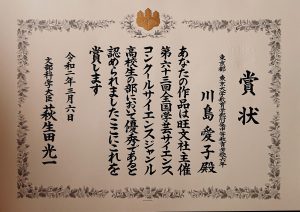 賞状
東京都 東京大学教育学部附属中等教育学校六年
川島愛子殿
あなたの作品は旺文社主催
第六十三回全国学芸サイエンス
コンクールサイエンスジャンル
高校生の部において優秀であると
認められましたここにこれを
賞します
令和二年三月六日
文部科学大臣 萩生田光一